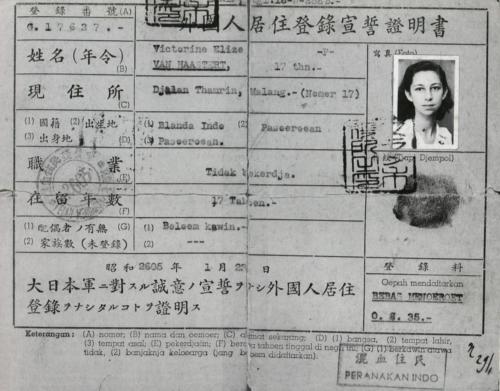 登錄番號(A)
G.17637.-
外國人居住登錄宣誓證明書
姓名(年令)
(B)
Victorine Elize -F-
VAN HAASTERT, 17 thn.-
寫眞 (Foto)
現住所
(C)
Djalan Thamrin, Malang.- (Nomer 17)
(1) 國籍 (2) 出生地
(3) 出身地 (D)
(1) Blanda Indo (2) Pasoeroean.
(3) Pasoeroean.
(Tjap Djempol)
職業
(E)
Tidak bekerdja.
住留年數
(F)
17 Tahoen.-
(1) 配偶者ノ有無 (G)
(2) 家族數 (未登錄)
(1) Beloem kawin.-
(2) ---
昭和 2605 年 1 月 日
大日本軍ニ對スル誠意ノ宣誓ヲナシ外國人居住
登錄ヲナシタルコトヲ證明ス
登錄料
Oepah mendaftar
BEBAS MENOEROET
O. S. 35.-
Keterangan: (A) nomor; (B) nama dan oemoer; (C) alamat sekarang; (D) (1) bangsa, (2) tempat lahir,
(3) tempat asal; (E) pekerdjaan; (F) tahoen tinggal di negeri ini; (G) (1) berkawin atawa
tidak, (2) banjaknja keloearga (jang beloem didaftarkan).
混血住民
PERANAKAN INDO